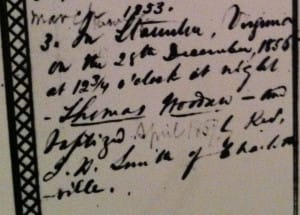 1833.
3. In Staunton, Virginia
on the 28th December, 1856
at 12 3/4 o'clock at night
- Thomas Woodrow - and
baptized April 1857 by Rev.
J. H. Smith of Charlottes
-ville.